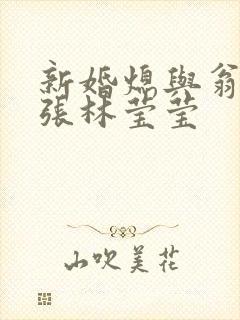 新婚媳與翁
張林莹莹
山吹美花